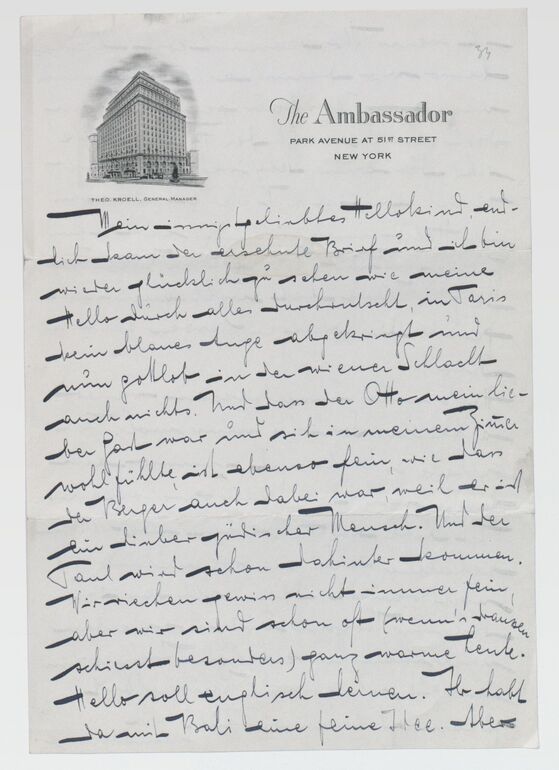 33
The Ambassador
PARK AVENUE AT 51ST STREET
NEW YORK
THEO. KROELL, GENERAL MANAGER
Mein innigstgeliebtes Hellokind, end-
lich kam der ersehnte Brief und ich bin
wieder glücklich zu sehen wie meine
Hello durch alles durchrutscht, in Paris
kein blaues Auge abgekriegt und
nun gottlob in der wiener Schlacht
auch nichts. Und dass der Otto mein lie-
ber Gast war und sich in meinem Zimmer
wohl fühlte, ist ebenso fein, wie dass
der Berger auch dabei war, weil er ist
ein lieber jüdischer Mensch. Und der
Paul wird schon dahinter kommen.
Wir riechen gewiss nicht immer fein,
aber wir sind schon oft (wenn's draussen
schiesst besonders) ganz warme Leute.
Hello soll englisch lernen. Ihr habt
da mit Bali eine feine Idee. Aber